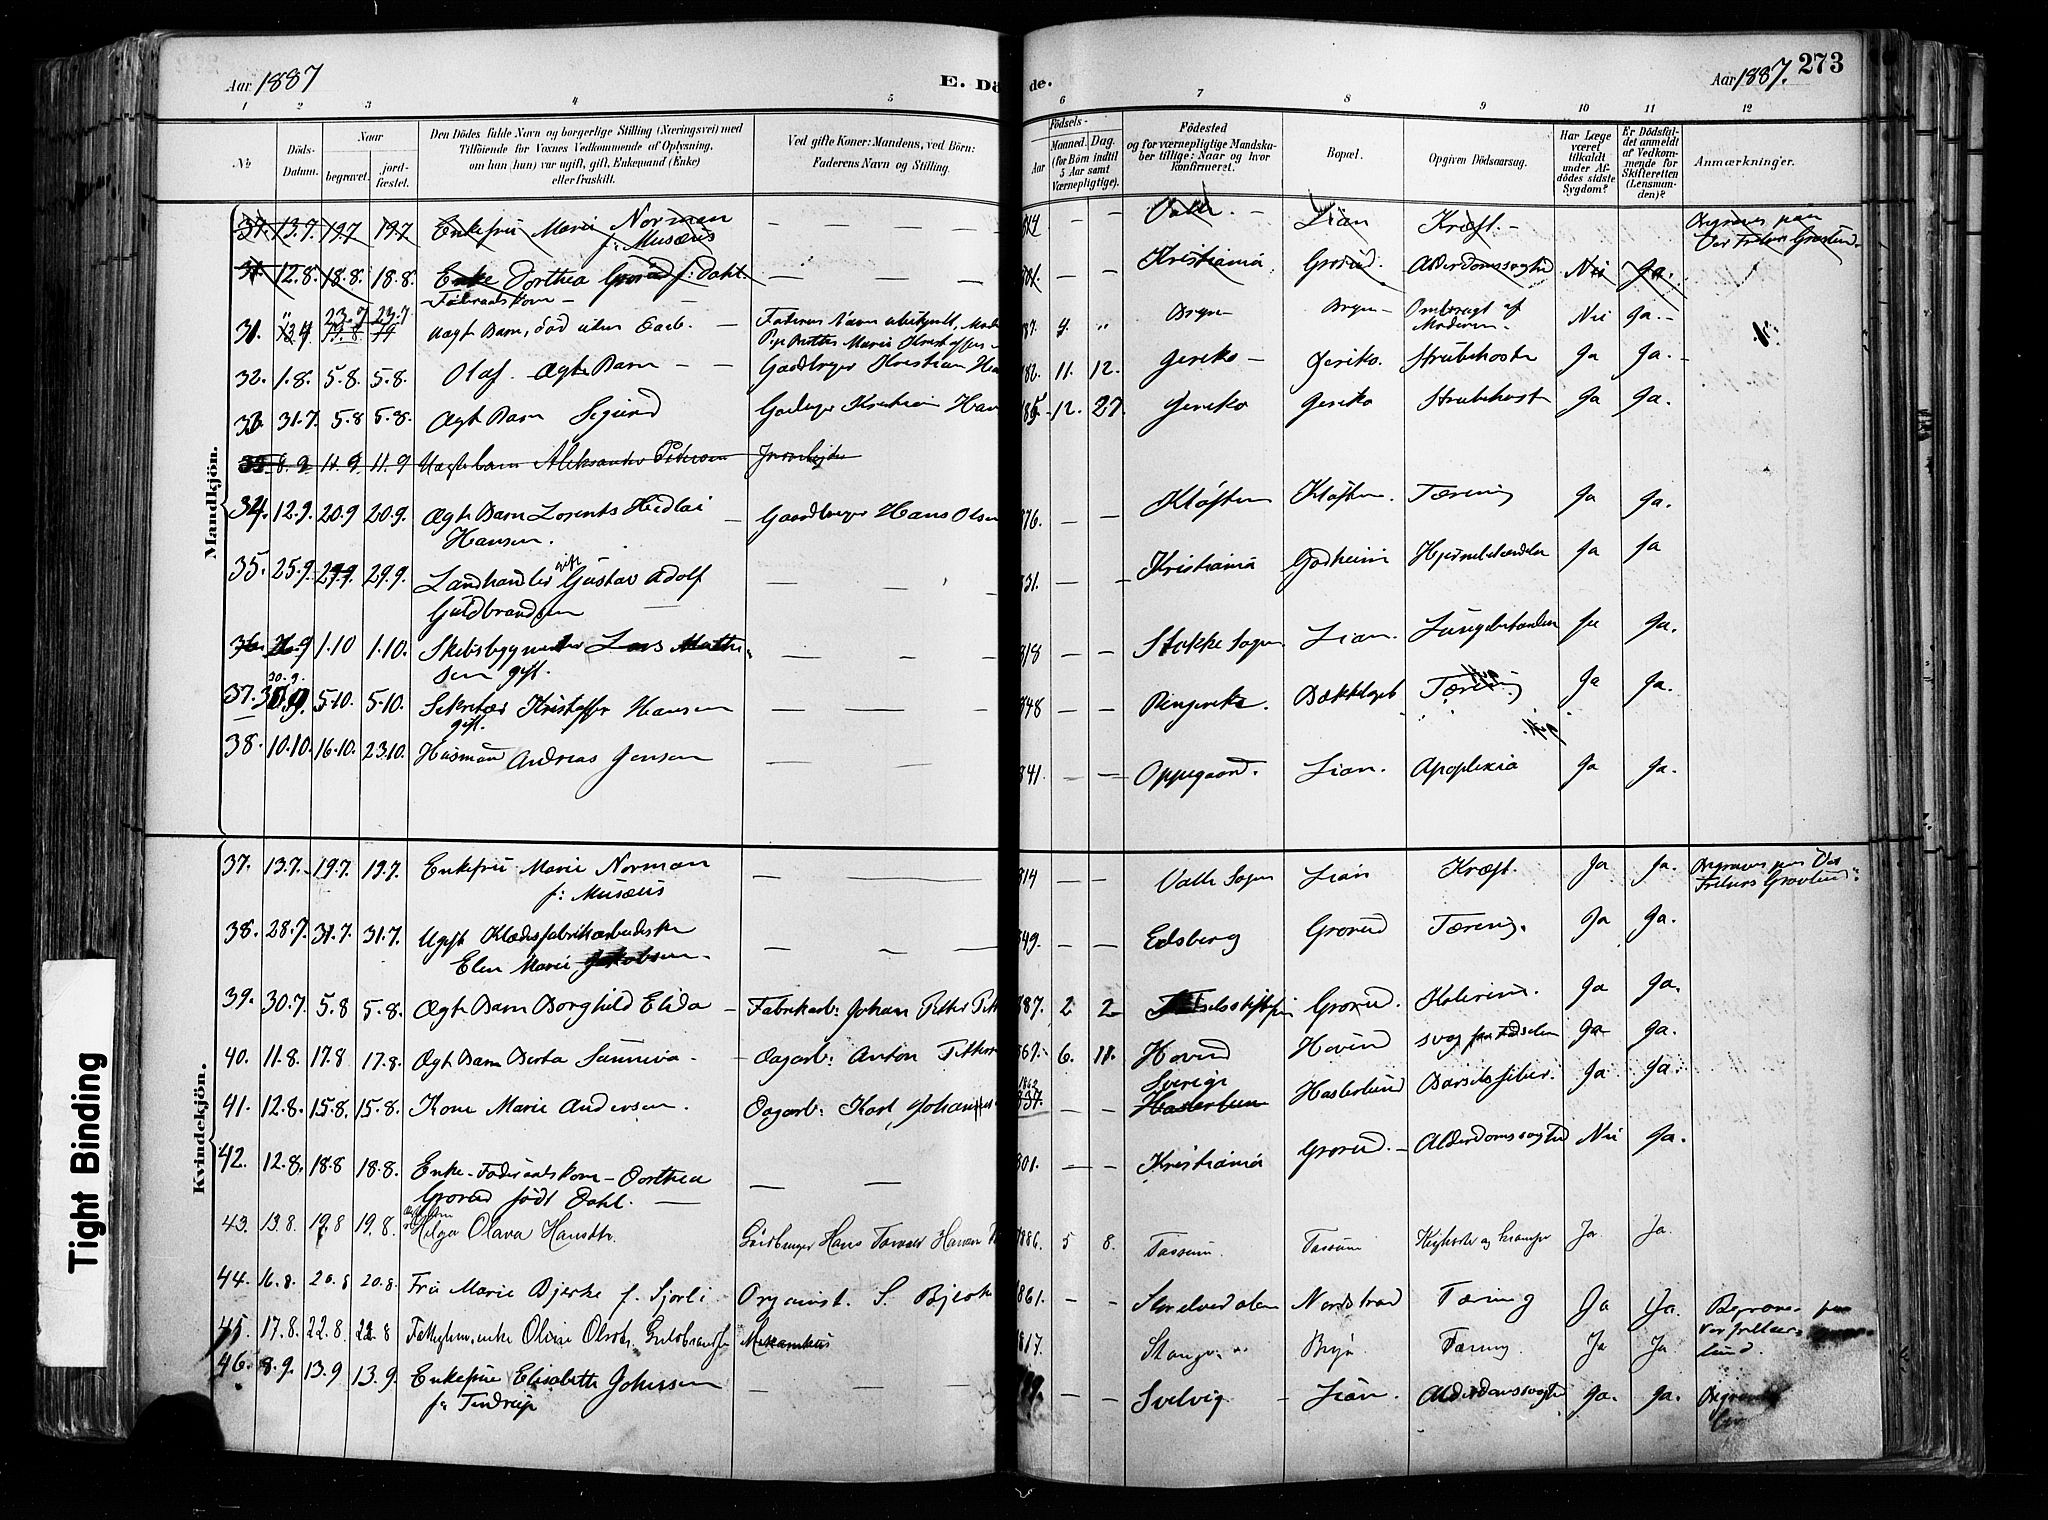 Aar 1887
E. Dö
de.
Aar 1887. 273
1 2 3 4 5 6 7 8 9 10 11 12
No
Döds-Datum.
Naar
begravet.
jord-fæstet.
Den Dödes fulde Navn og borgerlige Stilling (Næringsvei) med
Tilföiende for Voxnes Vedkommende af Oplysning,
om han (hun) var ugift, gift, Enkemand (Enke)
eller fraskilt.
Ved gifte Koner: Mandens, ved Börn:
Faderens Navn og Stilling.
Födsels-
Aar
Maaned. Dag.
(for Börn indtil
5 Aar samt
Værnepligtige).
Födested
og for værnepligtige Mandska-
ber tillige: Naar og hvor
Konfirmeret.
Bopæl.
Opgiven Dödsaarsag.
Har Læge
været
tilkaldt
under Af-
dödes sidste
Sygdom?
Er Dödsfal-
det anmeldt
af Vedkom-
mende for
Skifteretten
(Lensman-
den)?
Anmærkninger.
Mandkjön.
37. 13.7. 19.7 19.7 Enkefru Marie Norman — — 814 — — Valle — Lian Kræft. —
f: Musæus
12.8. 18.8. 18.8. Enke Dorthea Grorud f: Dahl — — 801. — — Kristiania Grorud. Alderdomssvaghed Nei Ja.
Föderaadskone —
31. 23.7 23.7 Uægt Barn, död uden Daab. — Faderens Navn ubekjendt, Bryn Bryn Nei Ja. —
Pige Marie
32. 1.8. 5.8. 5.8. Olaf. Ægte Barn — — Gaardbruger Kristian Han 882 11. 12. Jeriko — Jeriko. Strubehoste Ja Ja. —
33. 31.7. 5.8 5.8. Ægt Barn Sigurd Kristian Han 885 12. 27. Jeriko Jeriko Strubehost Ja Ja.
8.9 11.9 11.9 Uægte barn Aleksander Petersen
34. 12.9. 20.9 20.9. Ægte Barn Lorents Hansen. — Gaardbruger Hans Olsen 876. — — Klöften Klöften. Tæring Ja Ja.
35. 25.9. 29.9. 29.9. Landhandler gift Gustav Adolf
Guldbrandsen — — — 831. — — Kristiania Godheim Hjernebetændelse Ja Ja
36. 26.9 1.10 1.10. Skibsbygmester Lars Mathi-
sen gift. — — — 818 — — Stokke Sogn Lian. Lungebetændelse Ja Ja.
37. 30.9. 5.10. 5.10. Sekretær Kristoffer Hansen
gift. — — — 848 — — Ringerike. Bækkelaget Tæring Ja Ja.
38. 10.10. 16.10. 23.10. Husmand Andreas Jensen — — — 841. — — Oppegaard. Lian. Apoplexia Ja Ja.
Kvindekjön.
37. 13.7. 19.7. 19.7. Enkefru Marie Norman
f: Musæus — — 814 — — Valle Sogn Lian Kræft. Ja Ja. Begraves paa Vor
Frelsers Gravlund.
38. 28.7. 31.7. 31.7. Ugift Klædesfabrikarbeiderske
Elen Marie Jakobsen. — — — 849. — — Edsberg Grorud Tæring. Ja Ja.
39. 30.7. 5.8 5.8. Ægt Barn Borghild Elida — Fabrikarb: Johan Petter Pett 887. 2 2 Födselsstiftelsen Grorud. Kolerine. Ja Ja.
40. 11.8. 17.8 17.8. Ægt Barn Berta Sunniva — Dagarb: Anton Petters 6. 11. Hovind Hovind svag fra Födselen Ja Ja.
41. 12.8. 15.8. 15.8. Kone Marie Andersen. Dagarb: Karl Johannes 1862 837. — — Sverige Haslerlund Haslerlund Barselsfeber. Ja Ja.
42. 12.8. 18.8 18.8. Enke — Föderaadskone — Dorthea
Grorud född Dahl. — — — 801. — — Kristiania Grorud. — Alderdomssvaghed Nei Ja.
43. 13.8. 19.8 19.8. Helga Olava Hansdtr. Gårdbruger Hans Torvald Hansen 1886. 5 8. Tassum. Tassum Kighoste og krampe Ja Ja.
44. 16.8. 20.8 20.8. Fru Marie Bjerke f. Sjorli Organist. S. Bjerke 861. — — Nordstrand Tæring Ja Ja. Begraves paa
Vor frelsers
lund.
45. 17.8. 22.8. 22.8 enke Oline Olsdtr. Guldbrandsen Mekanikus 817. — — Stange Bryn Tæring Ja Ja.
46. 8.9. 13.9 13.9. Enkefrue Elisabeth Johnsen
f: Tendrup — — — — — Svelvig Lian. Alderdomssvaghed Ja. Ja. Begravet
Tight Binding